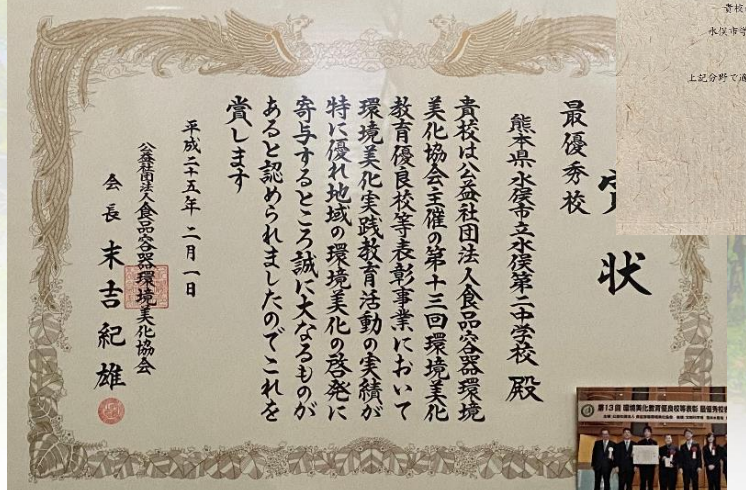 賞状
最優秀校
熊本県水俣市立水俣第二中学校 殿
貴校は公益社団法人食品容器環境
美化協会主催の第十三回環境美化
教育優良校等表彰事業において
環境美化実践教育活動の実績が
特に優れ地域の環境美化の啓発に
寄与するところ誠に大なるものが
あると認められましたのでこれを
賞します
平成二十五年 二月一日
公益社団法人食品容器環境美化協会
会長 末吉紀雄
貴校
水俣市学
上記分野で
第13回 環境美化教育優良校等表彰 最優秀校